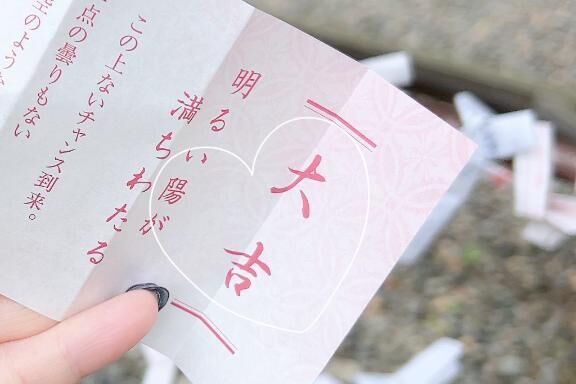 大吉
明るい陽が
満ちわたる
この上ないチャンス到来。
点の曇りもない
空のような